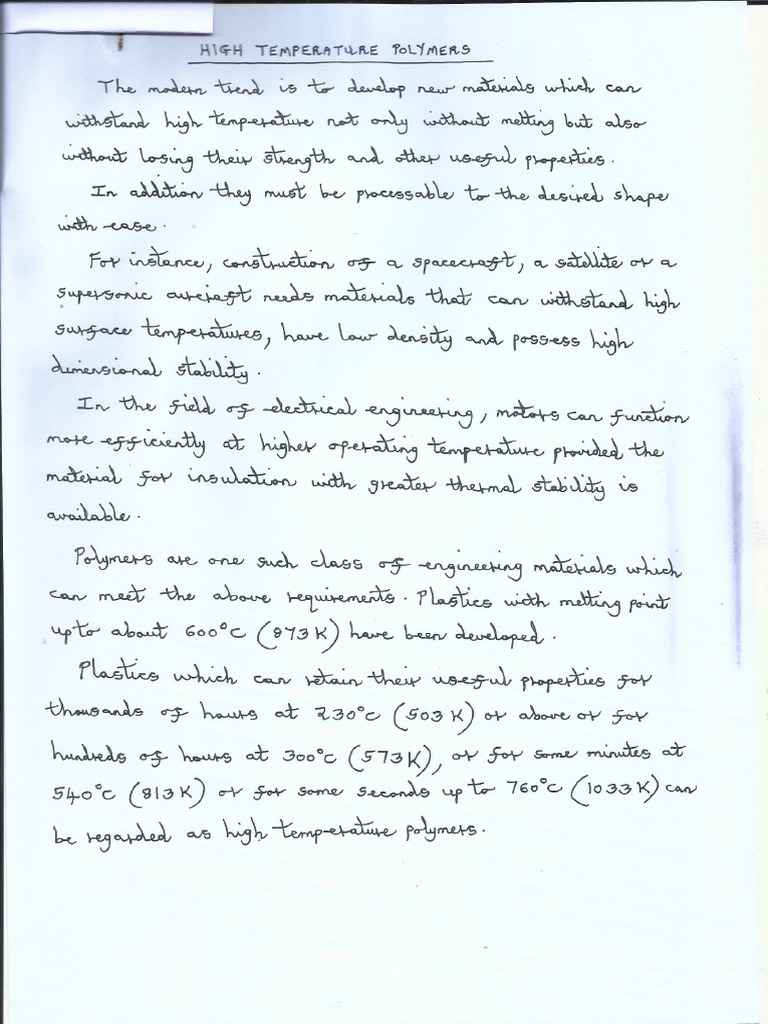 HIGH TEMPERATURE POLYMERS
The modern trend is to develop new materials which can
withstand high temperature not only without melting but also
without losing their strength and other useful properties.
In addition they must be processable to the desired shape
with ease.
For instance, construction of a spacecraft, a satellite or a
supersonic aircraft needs materials that can withstand high
surface temperatures, have low density and possess high
dimensional stability.
In the field of electrical engineering, motors can function
more efficiently at higher operating temperature provided the
material for insulation with greater thermal stability is
available.
Polymers are one such class of engineering materials which
can meet the above requirements. Plastics with melting point
upto about 600°C (873K) have been developed.
Plastics which can retain their useful properties for
thousands of hours at 230°C (503K) or above or for
hundreds of hours at 300°C (573K), or for some minutes at
540°C (813K) or for some seconds up to 760°C (1033K) can
be regarded as high temperature polymers.